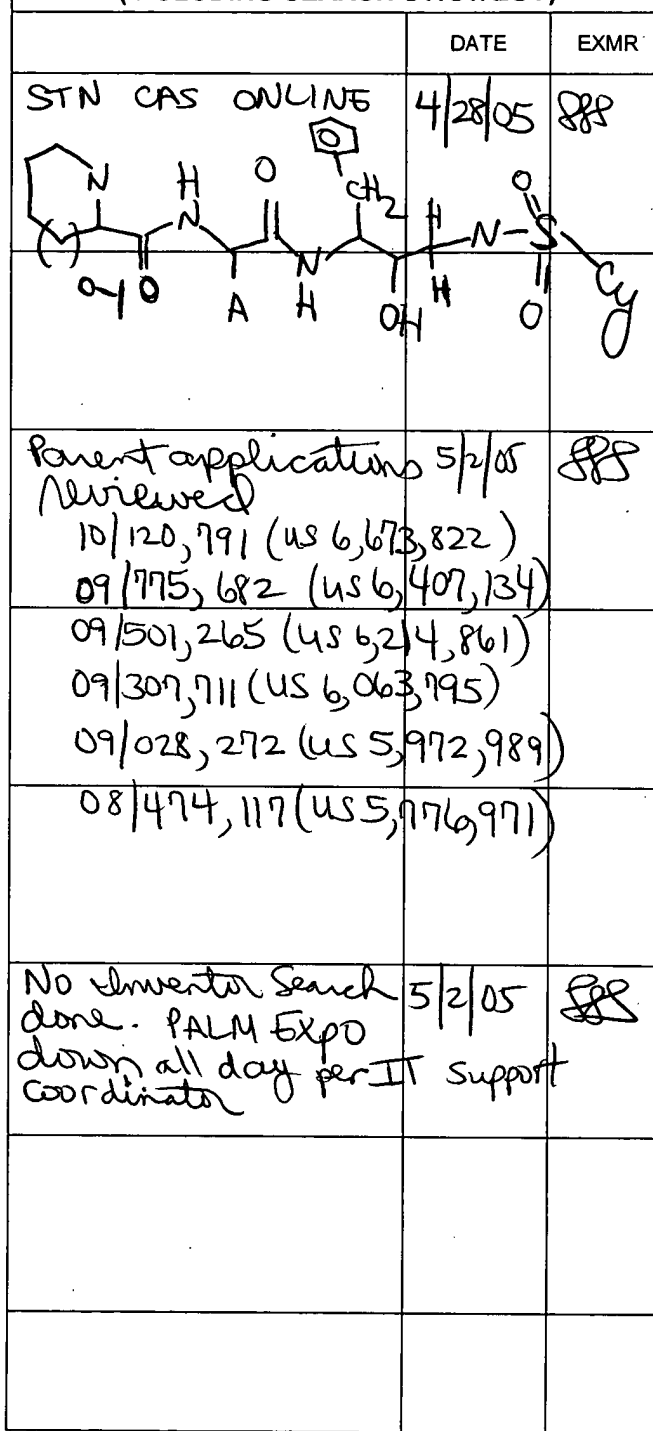 DATE EXMR
STN CAS ONLINE 4/28/05
O
N H O CH2 H O
N N N-S
( ) O H OH H O Cy
0-1 A
Parent applications 5/2/05
reviewed
10/120,791 (US 6,673,822)
09/775,682 (US 6,407,134)
09/501,265 (US 6,214,861)
09/307,711 (US 6,063,795)
09/028,272 (US 5,972,989)
08/474,117 (US 5,776,971)
No Inventor Search 5/2/05
done. PALM EXPO
down all day per IT support
coordinator